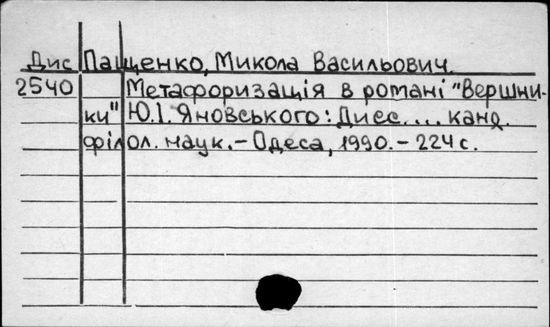 Дис Пащенко, Микола Васильович.
2540 Метафоризація в романі "Вершни-
ки" Ю.І. Яновського: Дисс.... канд.
філол. наук. – Одеса, 1990. – 224 с.